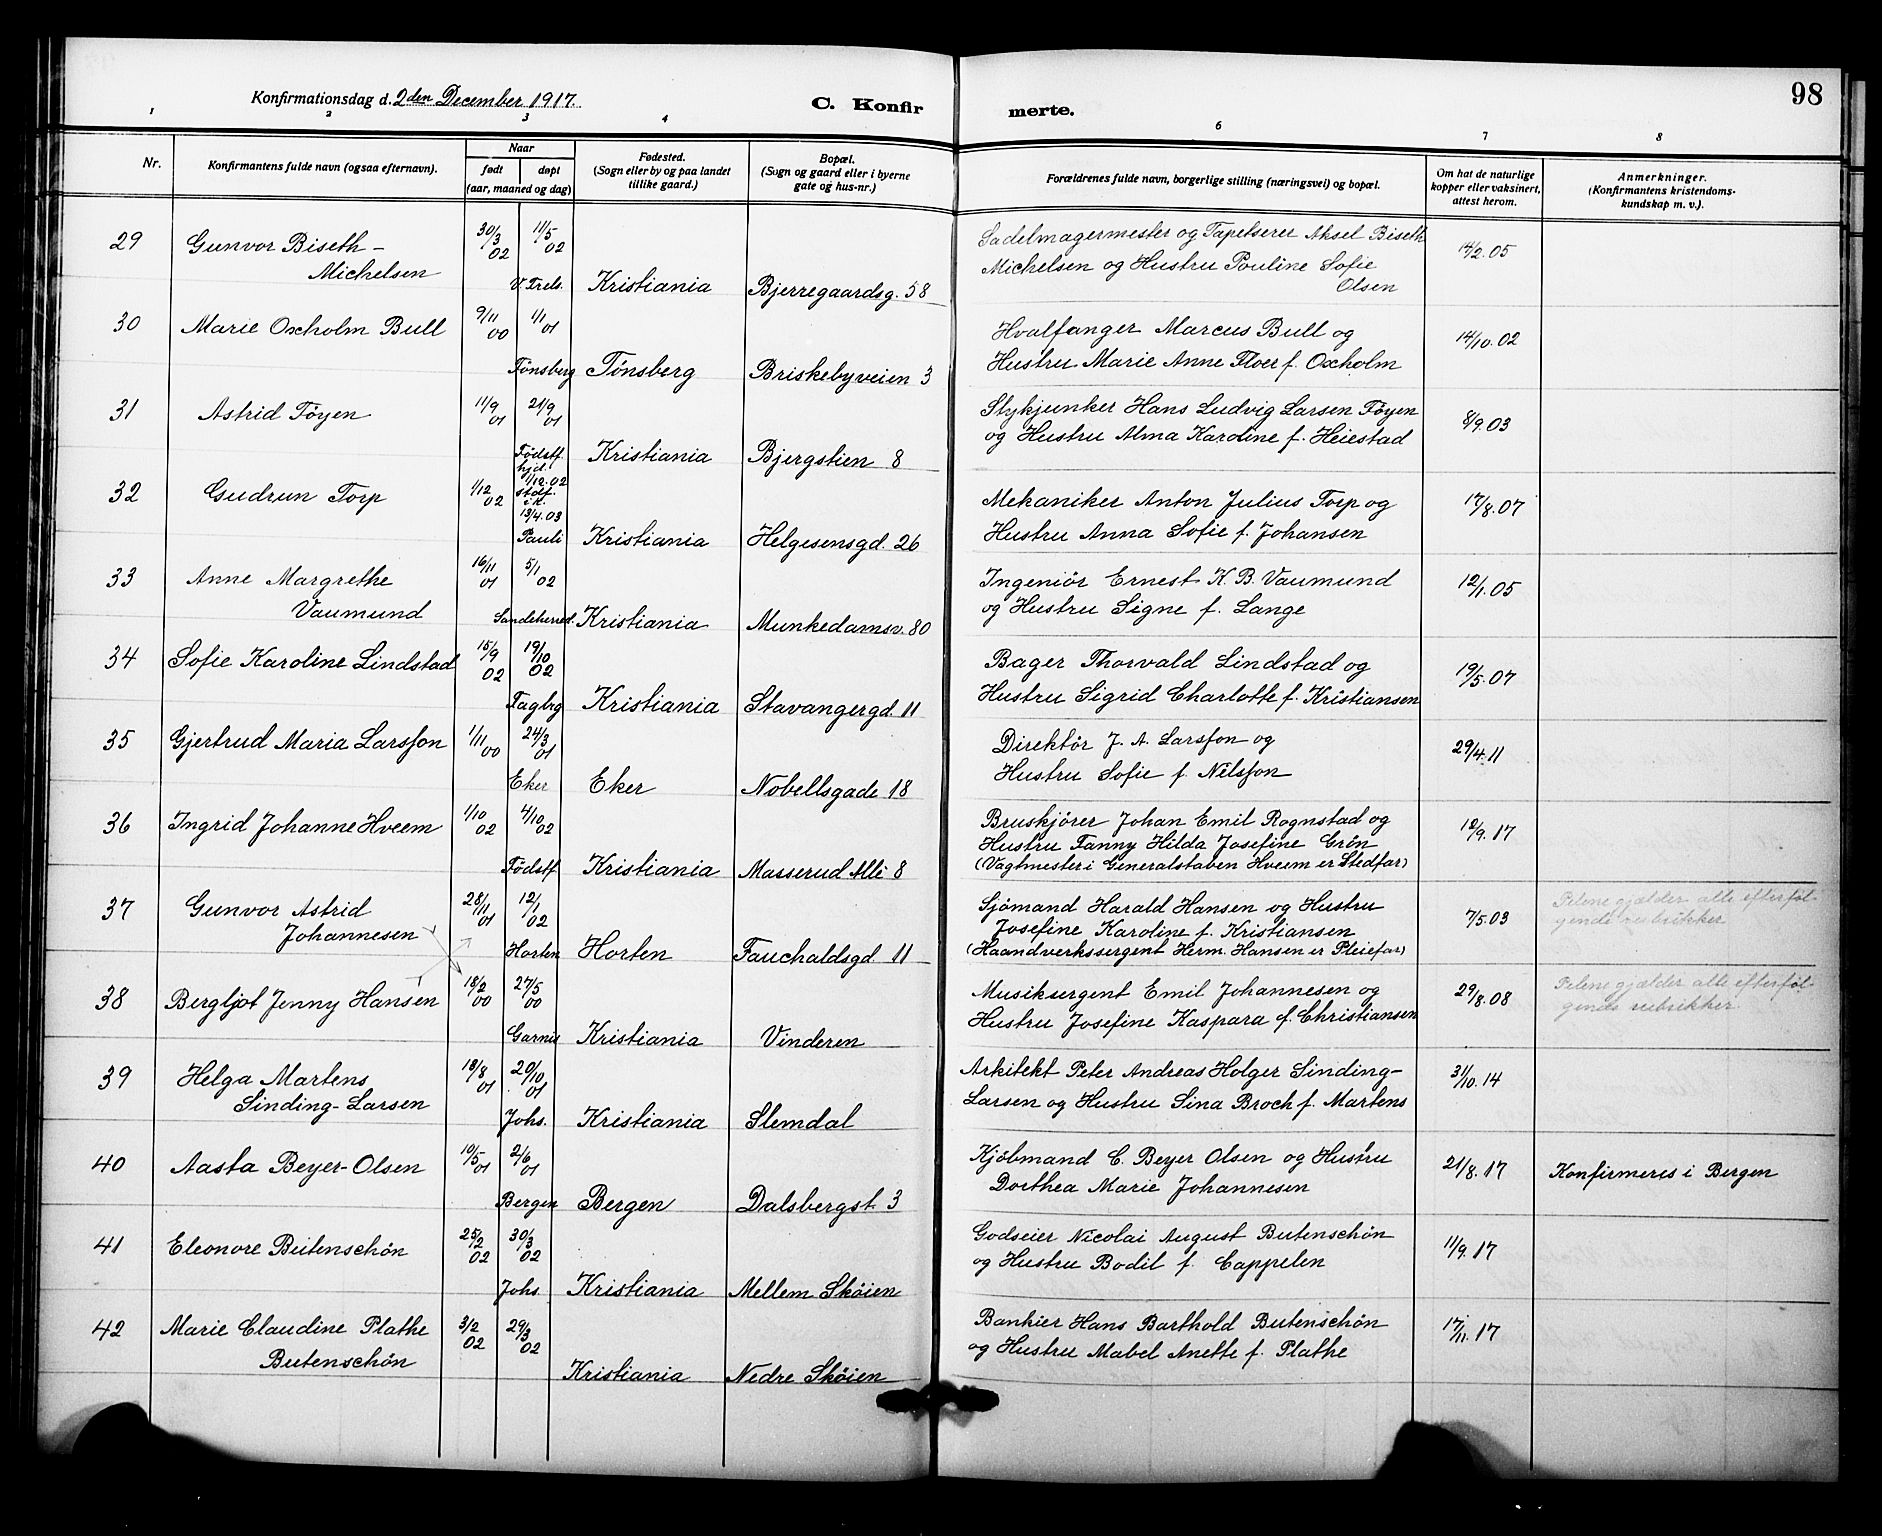 98
Konfirmationsdag d. 2den December 1917.
C. Konfirmerte.
1 2 3 4 6 7 8
Nr.
Konfirmantens fulde navn (ogsaa efternavn).
Naar
født døpt
(aar, maaned og dag)
Fødested.
(Sogn eller by og paa landet
tillike gaard.)
Bopæl.
(Sogn og gaard eller i byerne
gate og hus-nr.)
Forældrenes fulde navn, borgerlige stilling (næringsvei) og bopæl.
Om hat de naturlige
kopper eller vaksinert,
attest herom.
Anmerkninger.
(Konfirmantens kristendoms-
kundskap m. v.).
29 Gunvor Biseth- 30/3 02 11/5 02 Sadelmagermester og Tapetserer Aksel Biseth 14/2.05
Michelsen V. Frels. Kristiania Bjerregaardsg. 58 Michelsen og Hustru Pouline Sofie
Olsen
30 Marie Oxholm Bull 9/11 00 1/1 01 Hvalfanger Marcus Bull og 14/10.02
Tönsberg Tönsberg Briskebyveien 3 Hustru Marie Anne Floer f. Oxholm
31 Astrid Töyen 11/9 01 21/9 01 Stykjunker Hans Ludvig Larsen Töyen 8/9.03
Födstf. Kristiania Bjergstien 8 og Hustru Alma Karoline f. Heiestad
32 Gudrun Torp 1/12 02 hjd. 1/12.02 stadf. i k. 13/4.03 Mekaniker Anton Julius Torp og 17/8.07
Pauli Kristiania Helgesensgd. 26 Hustru Anna Sofie f. Johansen
33 Anne Margrethe 16/11 01 5/1 02 Ingeniör Ernest K. B. Vaumund 12/1.05
Vaumund Sandeherred. Kristiania Munkedamsv. 80 og Hustru Signe f. Lange
34 Sofie Karoline Lindstad 15/9 02 19/10 02 Bager Thorvald Lindstad og 19/5.07
Fagbg Kristiania Stavangergd. 11 Hustru Sigrid Charlotte f. Kristiansen
35 Gjertrud Maria Larsson 1/11 00 24/3 01 Direktör J. A. Larsson og 29/4.11
Eker Eker Nobellsgade 18 Hustru Sofie f. Nilsson
36 Ingrid Johanne Hveem 1/10 02 4/10 02 Bruskjörer Johan Emil Rognstad og 10/9.17
Hustru Fanny Hilda Josefine Grön
Födstf Kristiania Masserud Alle 8 (Vagtmester i Generalstaben Hveem er Stedfar)
37 Gunvor Astrid 28/11 01 12/1 02 Sjömand Harald Hansen og Hustru 7/5.03 Pelene gjælder alle efterföl-
Johannesen Josefine Karoline f. Kristiansen gende rubrikker
Horten Horten Fauchaldsgd. 11 (Haandverkssergent Herm. Hansen er Pleiefar)
38 Bergljot Jenny Hansen 18/2 00 27/5 00 Musiksergent Emil Johannesen og 29/8.08 Pelene gjælder alle efterföl-
Garnis Kristiania Vinderen Hustru Josefine Kaspara f. Christiansen gende rubrikker
39 Helga Martens 18/8 01 20/10 01 Arkitekt Peter Andreas Holger Sinding- 31/10.14
Sinding-Larsen Johs. Kristiania Slemdal Larsen og Hustru Sina Broch f. Martens
40 Aasta Beyer-Olsen 10/5 01 2/6 01 Kjöbmand C. Beyer Olsen og Hustru 21/8.17 Konfirmeres i Bergen
Bergen Bergen Dalsbergst. 3 Dorthea Marie Johannesen
41 Eleonore Butenschön 25/2 02 30/3 02 Godseier Nicolai August Butenschön 11/9.17
Johs. Kristiania Mellem Sköien og Hustru Bodil f. Cappelen
42 Marie Claudine Plathe 3/2 02 29/3 02 Bankier Hans Barthold Butenschön 17/11.17
Butenschön Kristiania Nedre Sköien og Hustru Mabel Anette f. Plathe